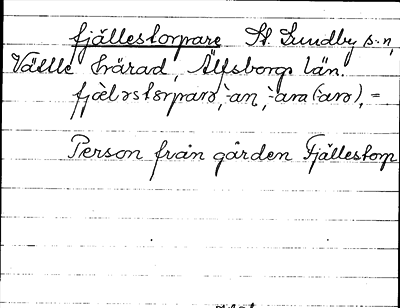 fjällestorpare St. Lundby s-n,
Väne Härad, Älfsborgs län.
fjæ̀lɔstɔrparɔ, -an, -ara (-arɔ), =
Person från gården Fjällestorp